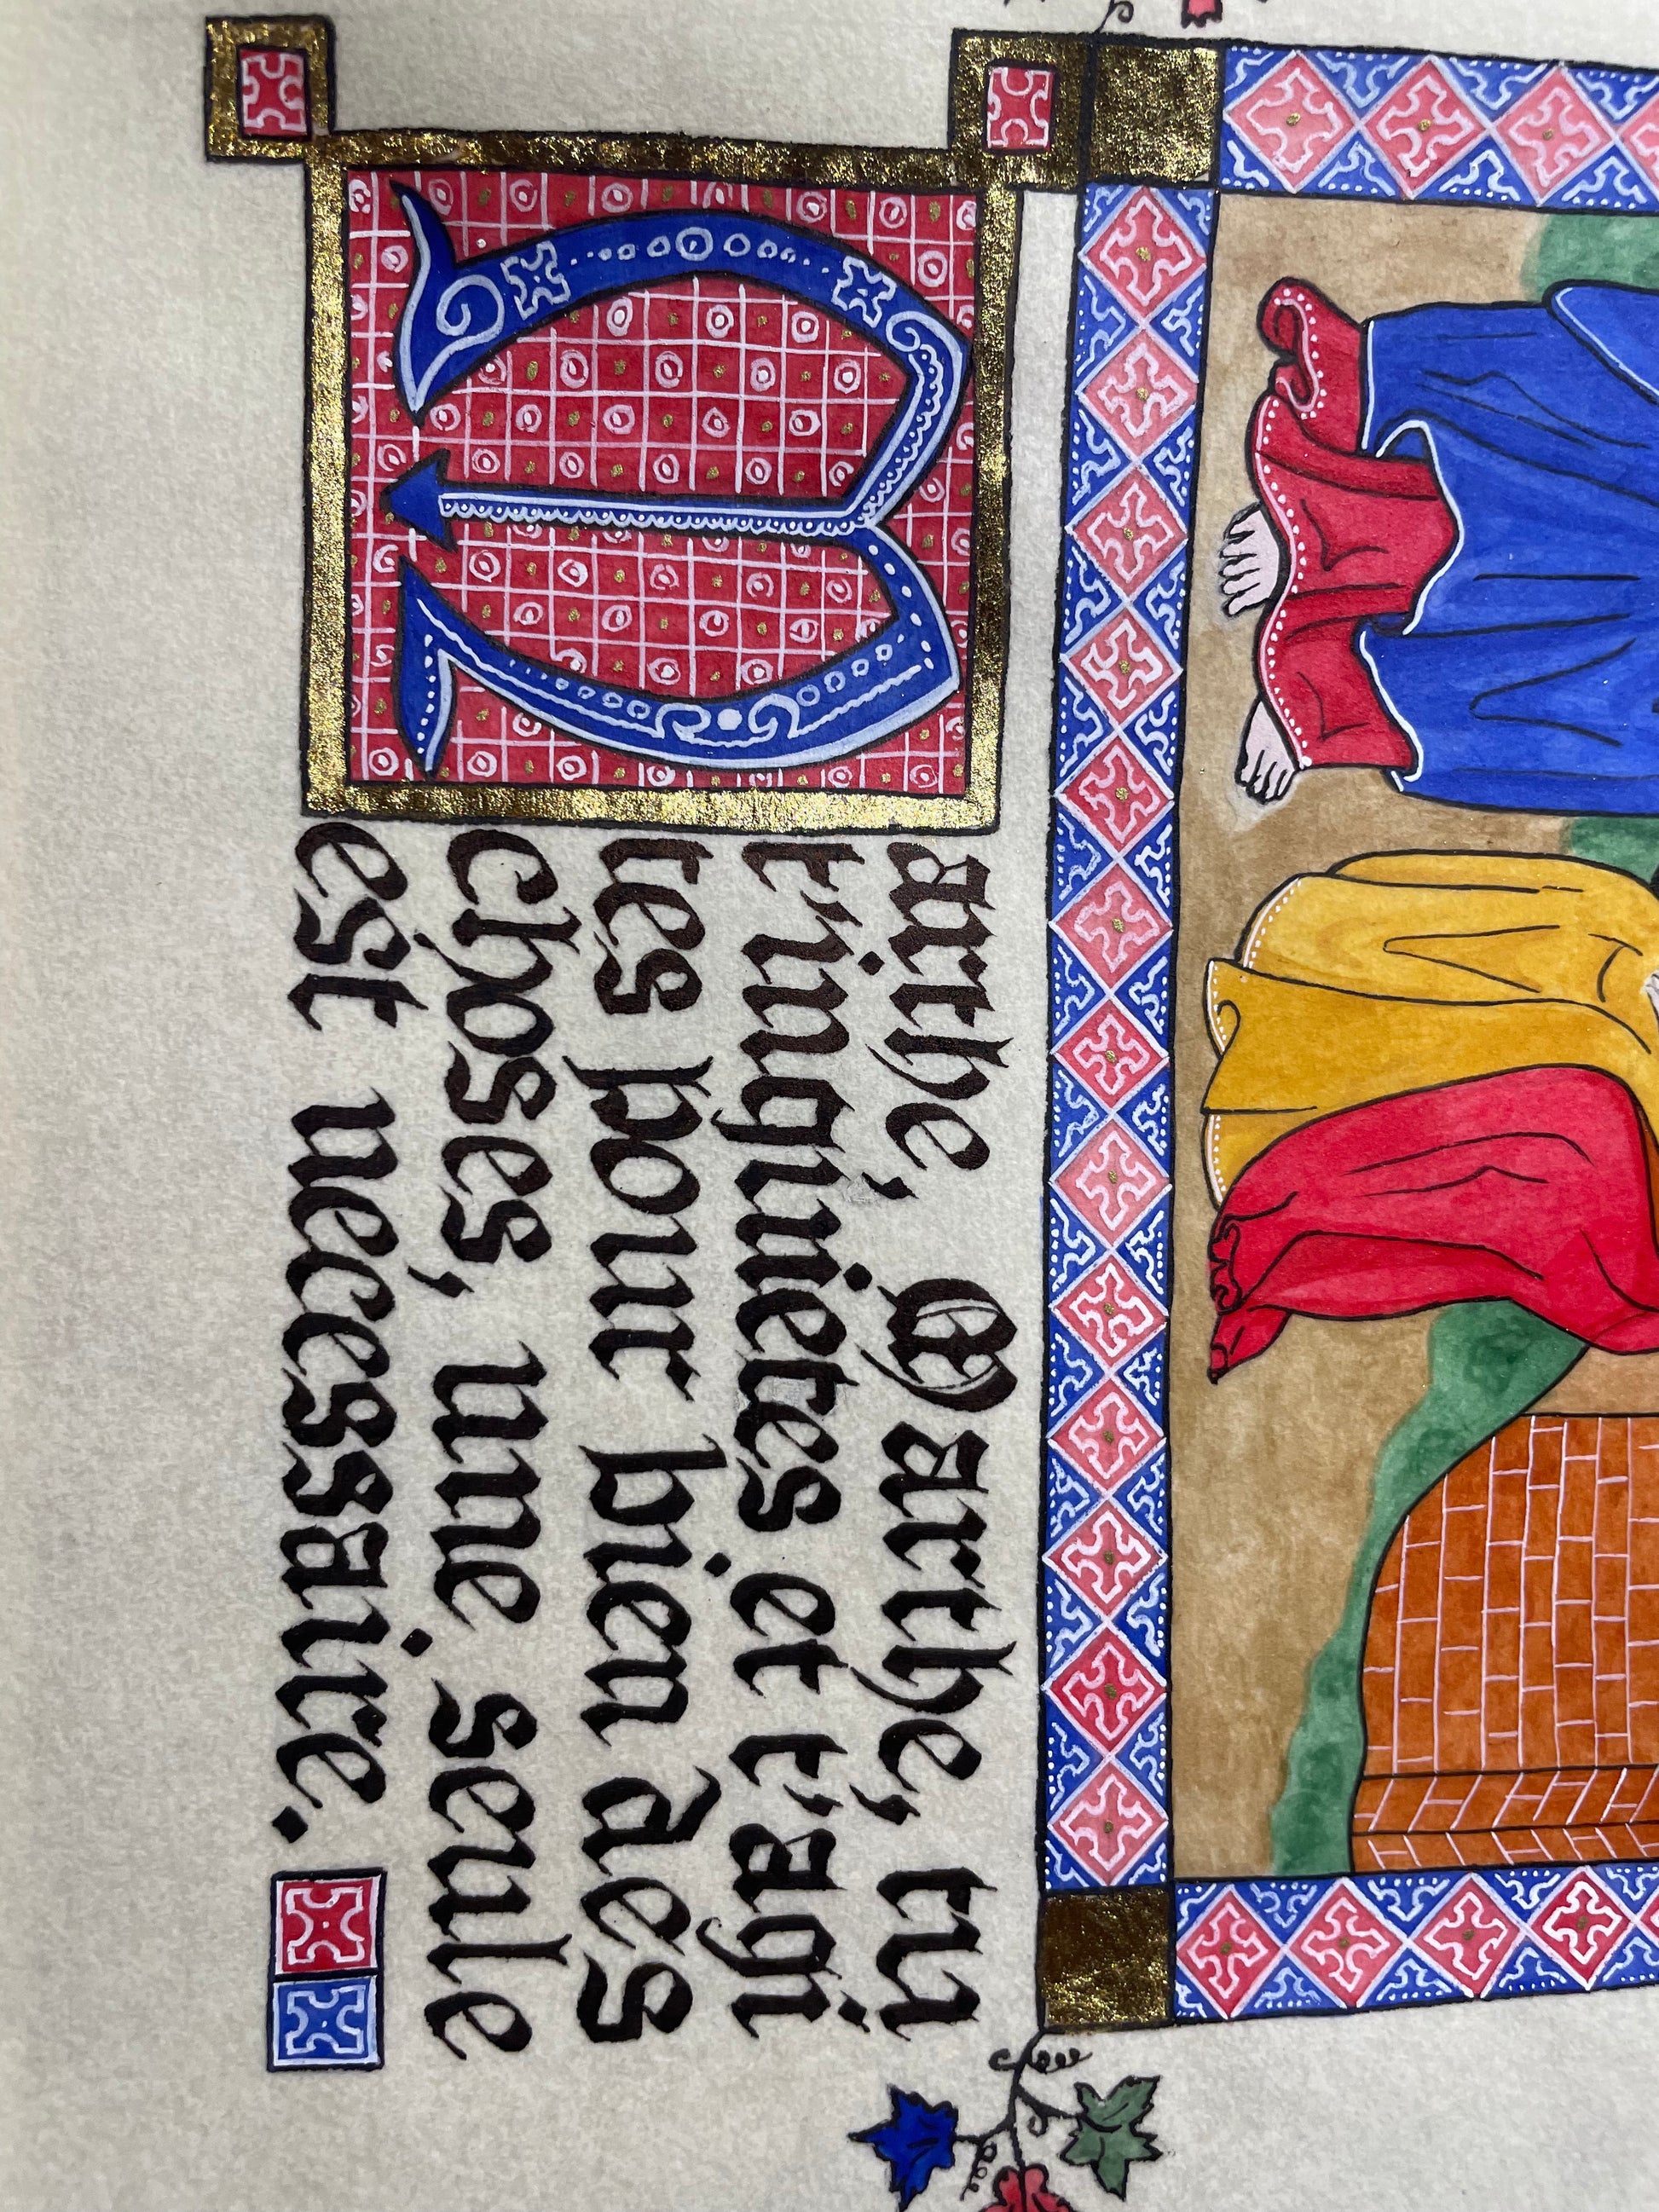 Marthe, Marthe, tu
t'inquietes et t'agi
tes pour bien des
choses, une seule
est necessaire.